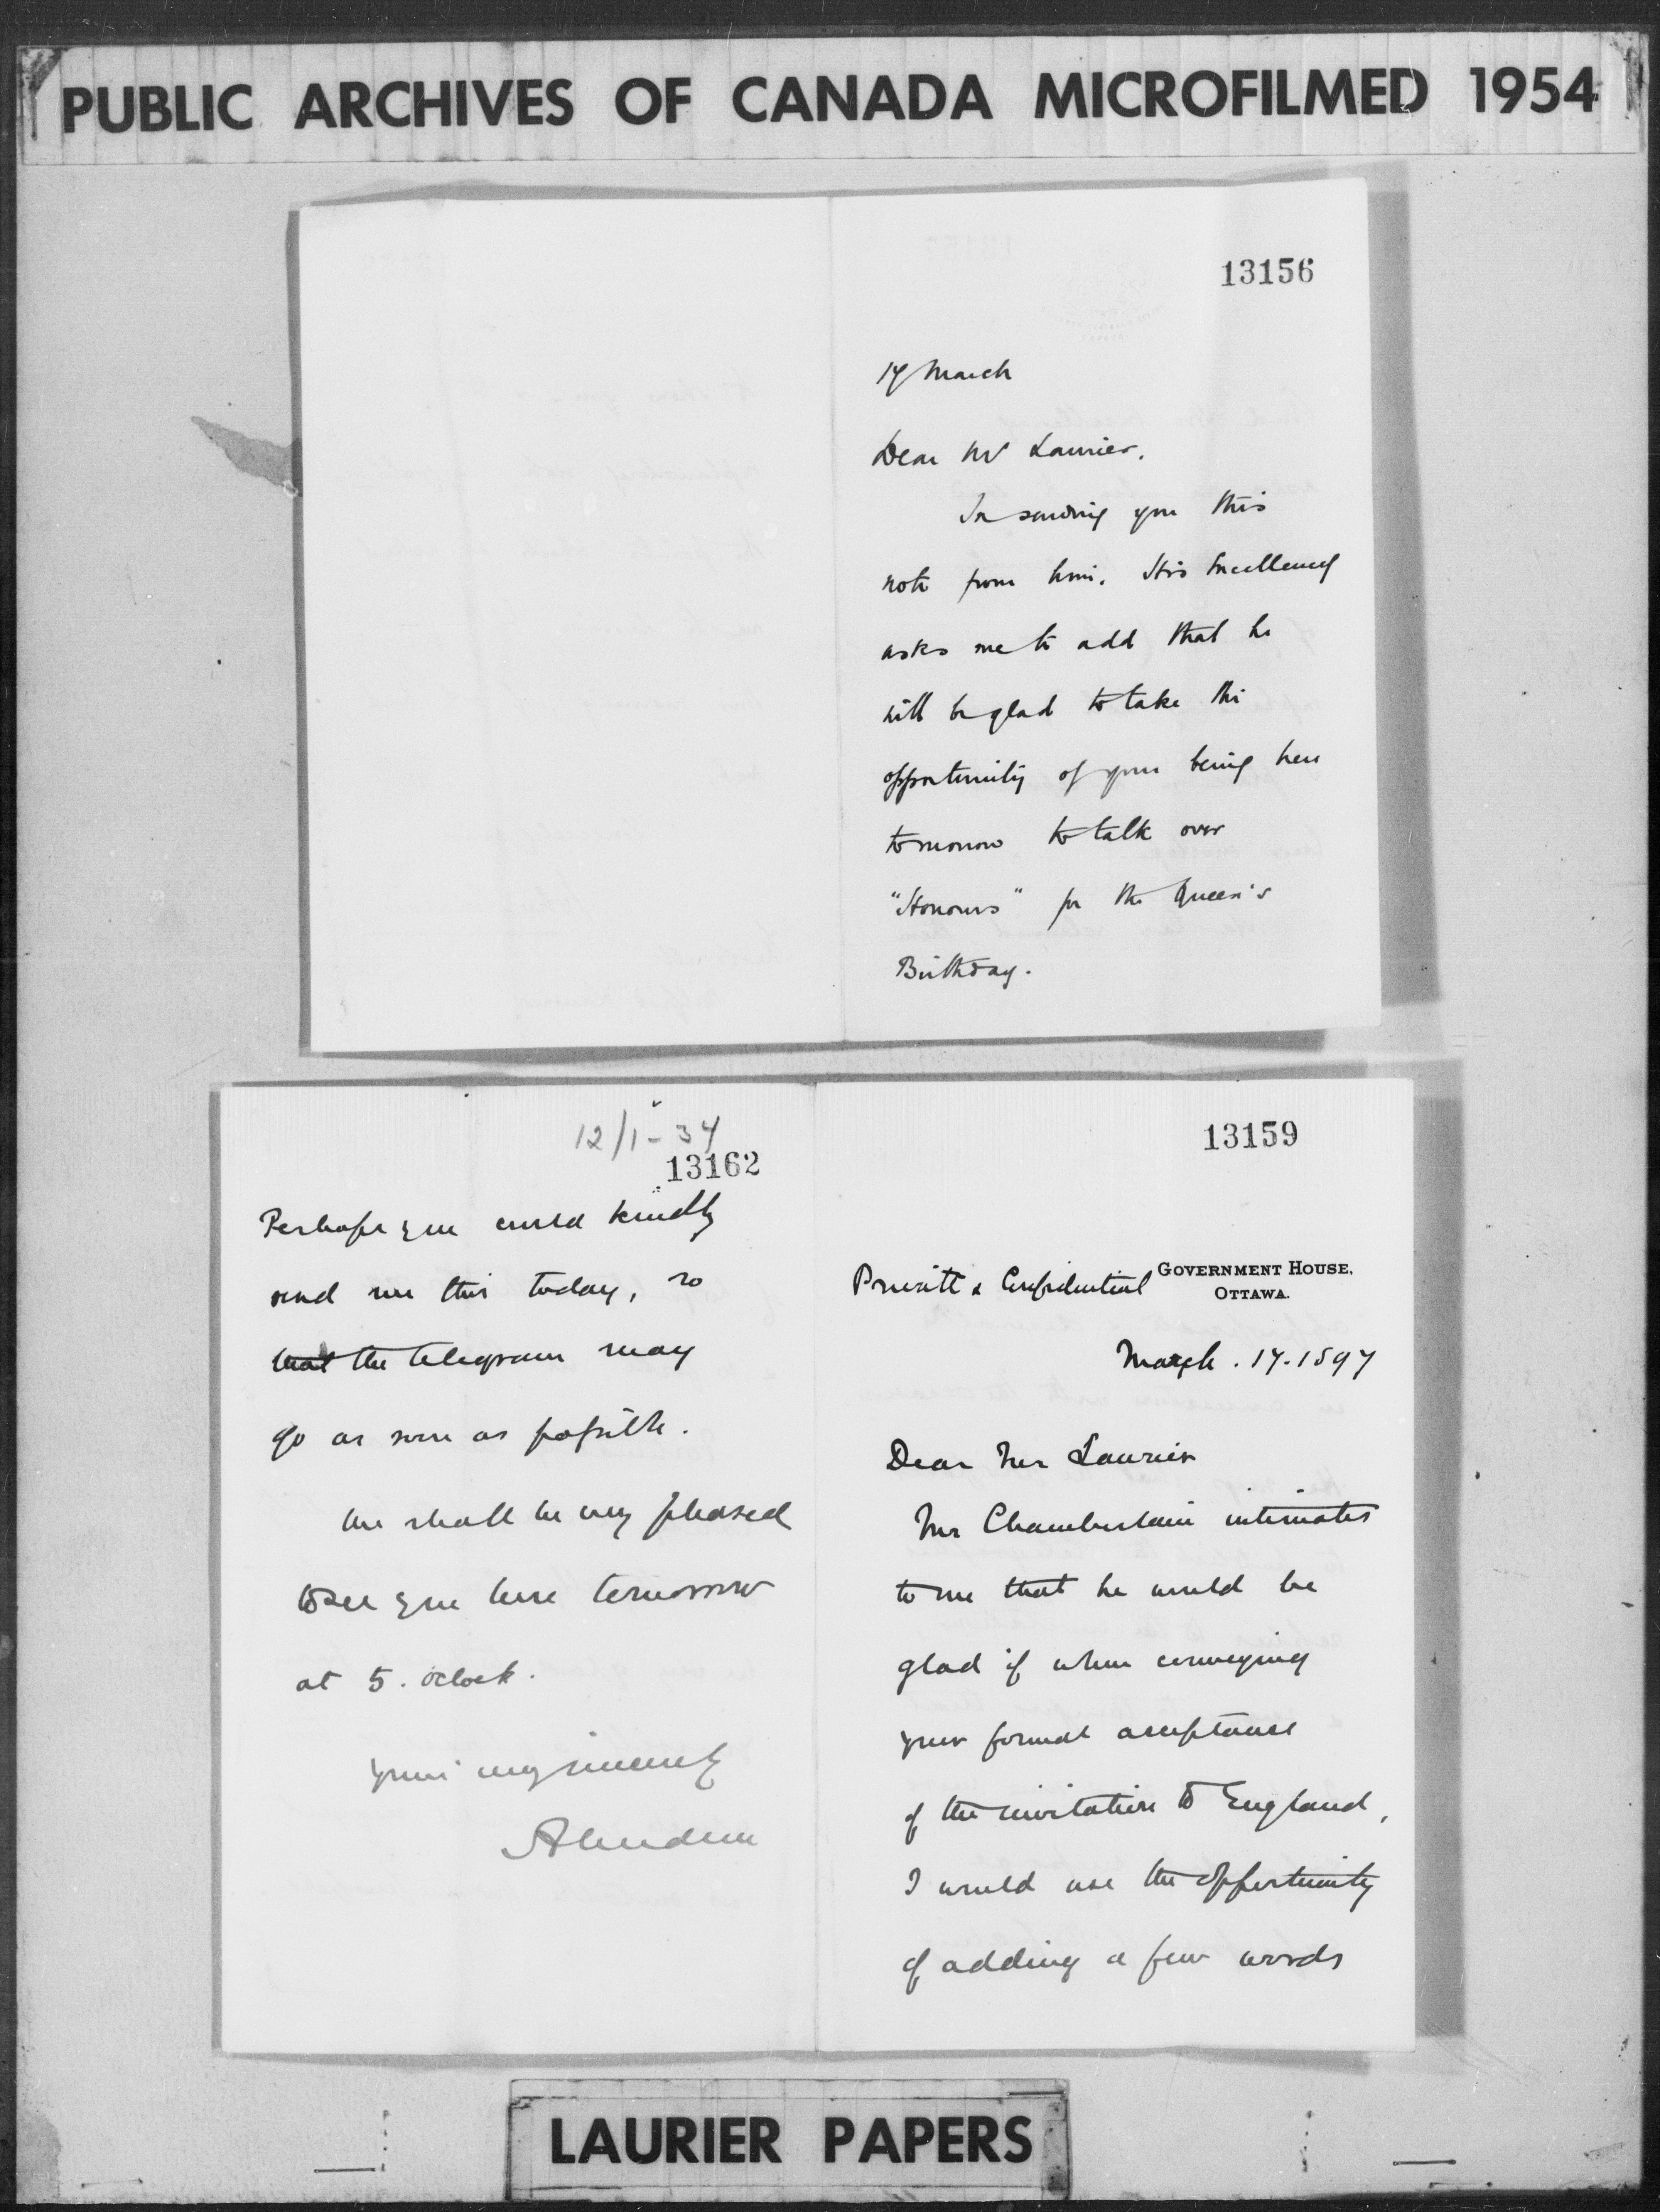 PUBLIC ARCHIVES OF CANADA MICROFILMED 1954
13156
17 March
Dear Mr Laurier.
In sending you this
note from him. His Excellency
asks me to add that he
will be glad to take the
opportunity of your being here
tomorrow to talk over
"Honours" for the Queen's
Birthday.
12/1-34
13162
Perhaps you could kindly
send me this today, so
that the telegram may
go as soon as possible.
We shall be very pleased
to see you here tomorrow
at 5. o'clock.
Yours very sincerely
Aberdeen
13159
Private & Confidential GOVERNMENT HOUSE,
OTTAWA.
March. 17. 1897
Dear Mr Laurier
Mr Chamberlain intimates
to me that he would be
glad if when conveying
your formal acceptance
of the invitation to England,
I would use the opportunity
of adding a few words
LAURIER PAPERS